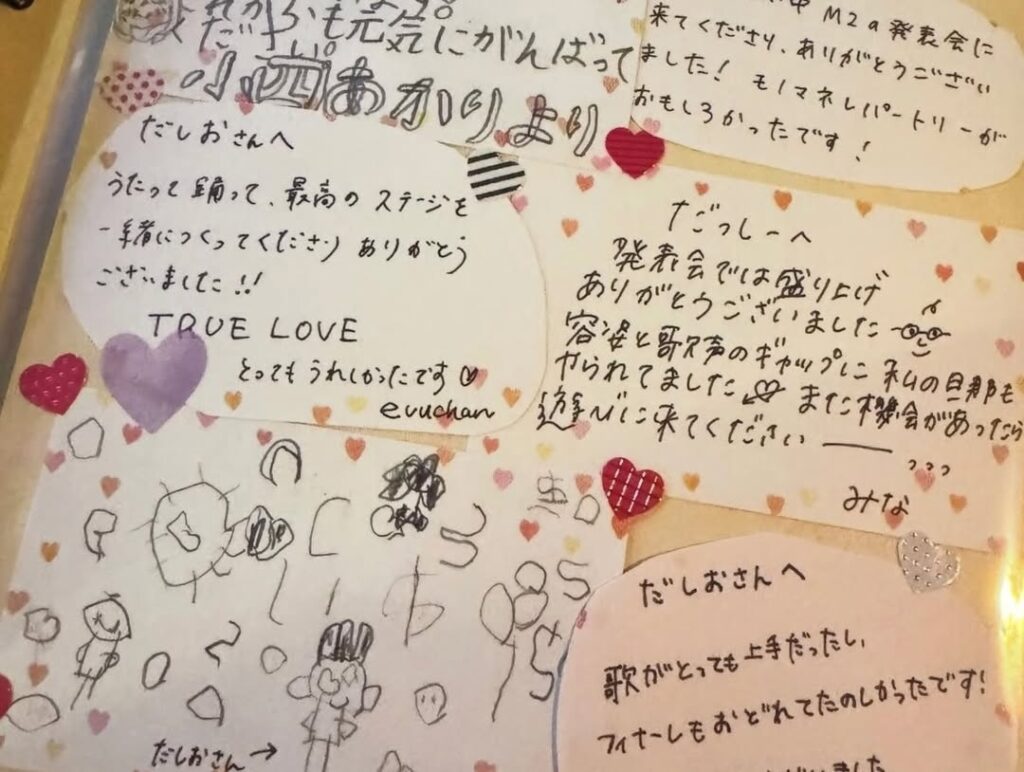 これからも元気にがんばって
だすい
小四あかりより
M2の発表会に
来てくださり、ありがとうござい
ました！ モノマネレパートリーが
おもしろかったです！
だしおさんへ
うたって踊って、最高のステージを
一緒につくってくださり ありがとう
ございました!!
TRUE LOVE
とってもうれしかったです♡
evuchan
だっしーへ
発表会では盛り上げ
ありがとうございました
容姿と歌声のギャップに 私の旦那も
やられてました また機会があったら
遊びに来てください
みな
だしおさん→
だしおさんへ
歌がとっても上手だったし、
フィナーレもおどれてたのしかったです!
ございました